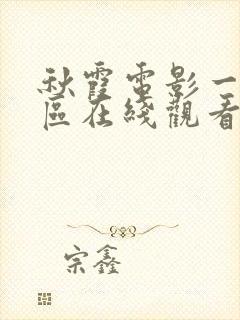 秋霞電影一
區在綫觀看
宗鑫